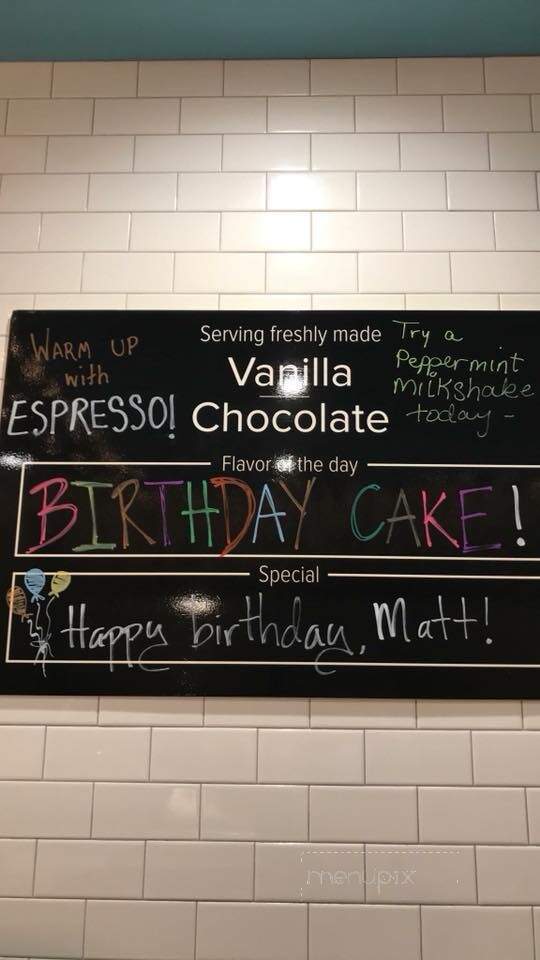 WARM UP
with
ESPRESSO!
Serving freshly made
Vanilla
Chocolate
Try a
Peppermint
Milkshake
today -
Flavor of the day
BIRTHDAY CAKE!
Special
Happy birthday, Matt!
menupix